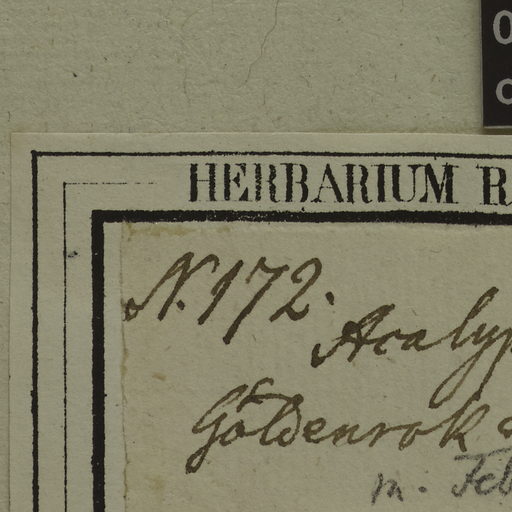 HERBARIUM
N. 172.
Acalyp
Göldenrok
m. Feb